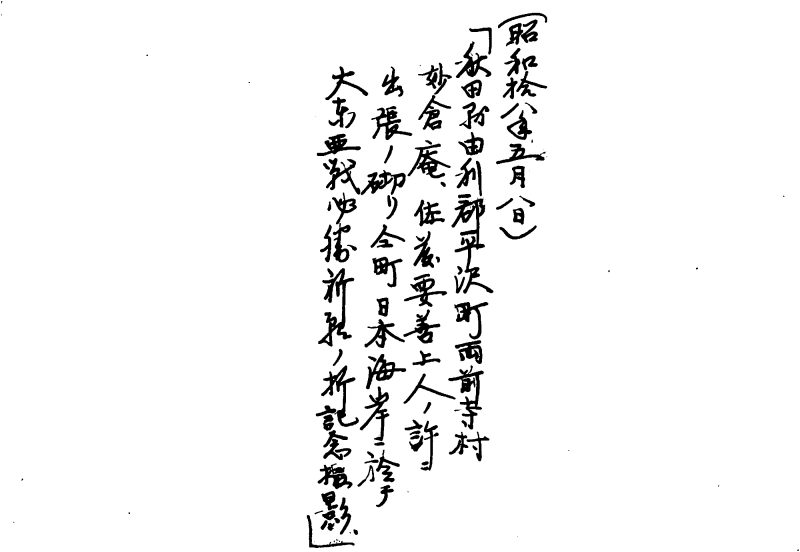 (昭和拾八年五月八日)
「秋田縣由利郡平沢町両前寺村
妙倉庵、佐藤要善上人ノ許ニ
出張ノ砌リ仝町日本海岸ニ於テ
大東亜戦必勝祈願ノ折記念撮影、」